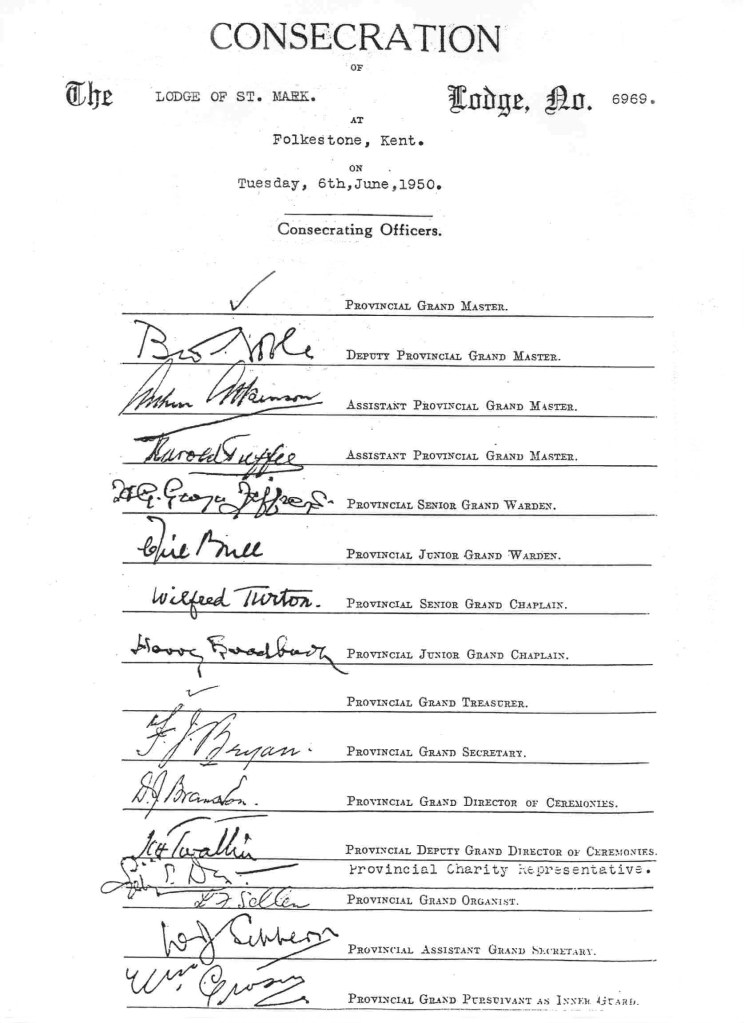 CONSECRATION
OF
The LODGE OF ST. MARK. Lodge, No. 6969.
AT
Folkestone, Kent.
ON
Tuesday, 6th,June,1950.
Consecrating Officers.
✓ PROVINCIAL GRAND MASTER.
DEPUTY PROVINCIAL GRAND MASTER.
Atkinson ASSISTANT PROVINCIAL GRAND MASTER.
Harold Tuffee ASSISTANT PROVINCIAL GRAND MASTER.
PROVINCIAL SENIOR GRAND WARDEN.
PROVINCIAL JUNIOR GRAND WARDEN.
Wilfred Turton. PROVINCIAL SENIOR GRAND CHAPLAIN.
Harry PROVINCIAL JUNIOR GRAND CHAPLAIN.
✓ PROVINCIAL GRAND TREASURER.
F. J. Bryan. PROVINCIAL GRAND SECRETARY.
PROVINCIAL GRAND DIRECTOR OF CEREMONIES.
PROVINCIAL DEPUTY GRAND DIRECTOR OF CEREMONIES.
Provincial Charity Representative.
PROVINCIAL GRAND ORGANIST.
PROVINCIAL ASSISTANT GRAND SECRETARY.
PROVINCIAL GRAND PURSUIVANT AS INNER GUARD.